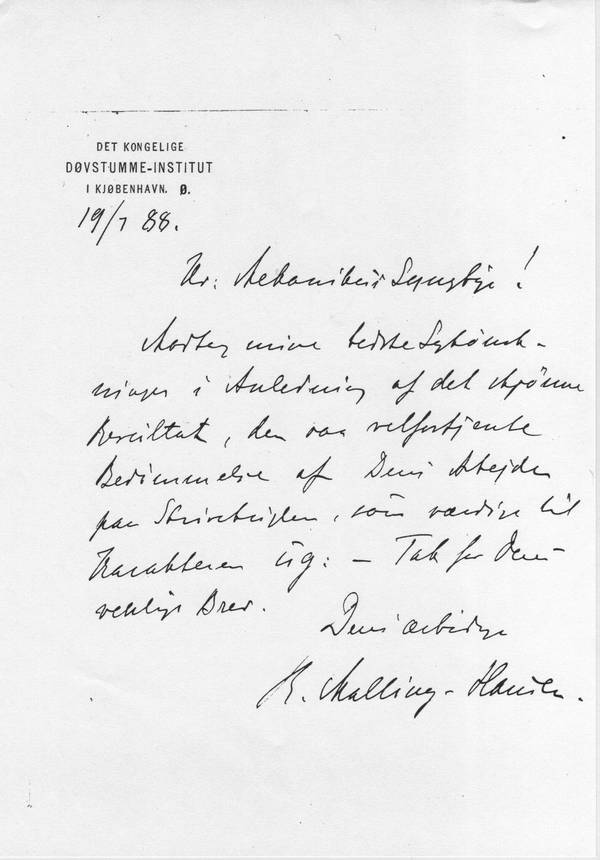 DET KONGELIGE
DØVSTUMME-INSTITUT
I KJØBENHAVN. Ø.
19/7 88.
Hr: Mekanikus Lyngbye!
Modtag mine bedste Lykønsk-
ninger i Anledning af det skjønne
Resultat, den saa velfortjente
Bedømmelse af Deres Arbejde
paa Skrivekuglen, som værdige til
Karakteren ug: – Tak for Deres
venlige Brev.
Deres ærbødige
R. Malling-Hansen.